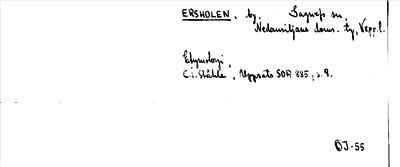 ERSHOLEN, by, Sagu sn,
Nedansiljans doms. ty, Kopp. l.
Etymologi,
C.I. Ståhle, Uppsats SOA 885, s. 9.
BJ-55